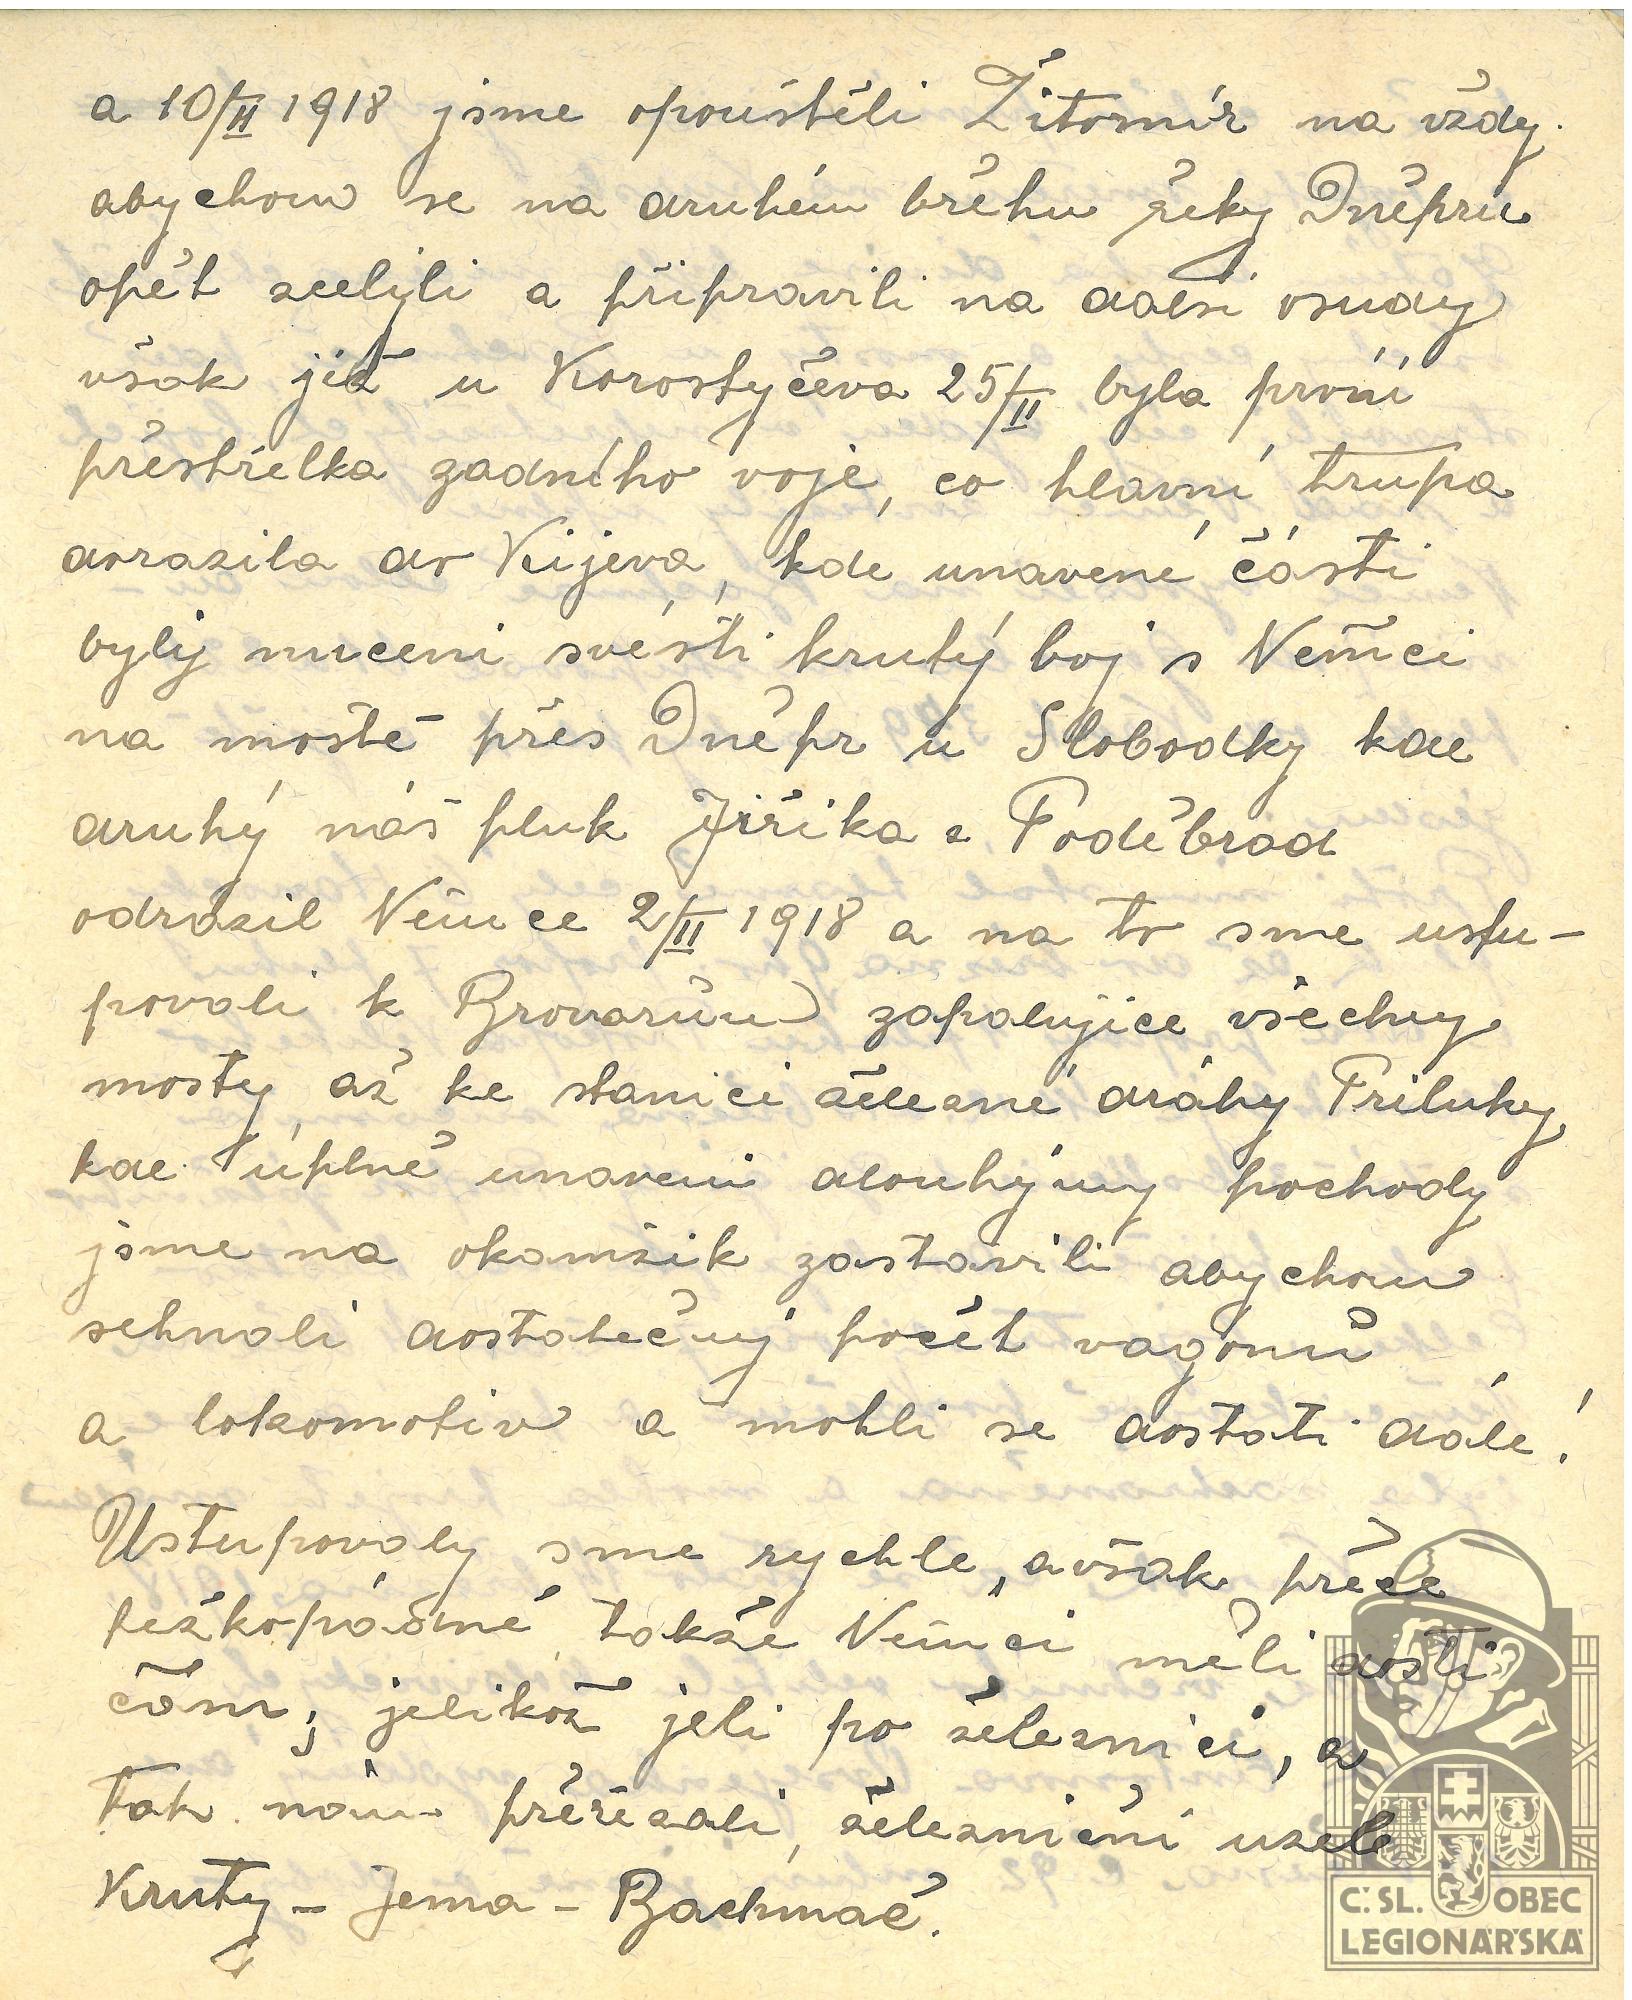 a 10/II 1918 jsme opouštěli Žitomír na vždy.
abychom se na druhém břehu řeky Dněpru
opět scelyli a připravili na další osudy
však již u Korostyčeva 25/II byla první
přestřelka zadního voje, co hlavní trupa
dorazila do Kijeva, kde unavené části
byly nuceni svésti krutý boj s Němci
na mostě přes Dněpr u Slobodky kde
druhý náš pluk Jiříka z Poděbrad
odrazil Němce 2/II 1918 a na to sme ustu-
povali k Brovarům zapalujíce všechny
mosty až ke stanici železné dráhy Priluky
kde úplně unaveni dlouhýmy pochody
jsme na okamžik zastavili abychom
sehnali dostatečný počet vagonů
a lokomotiv a mohli se dostati dále!
Ustupovaly sme rychle, avšak přece
težkopádně, takže Němci měli dosti
času, jelikož jeli po železnici, a
tak nám přeřezali, železniční uzel
Kruty - Jema - Bachmač.
Č.SL. OBEC
LEGIONÁŘSKÁ